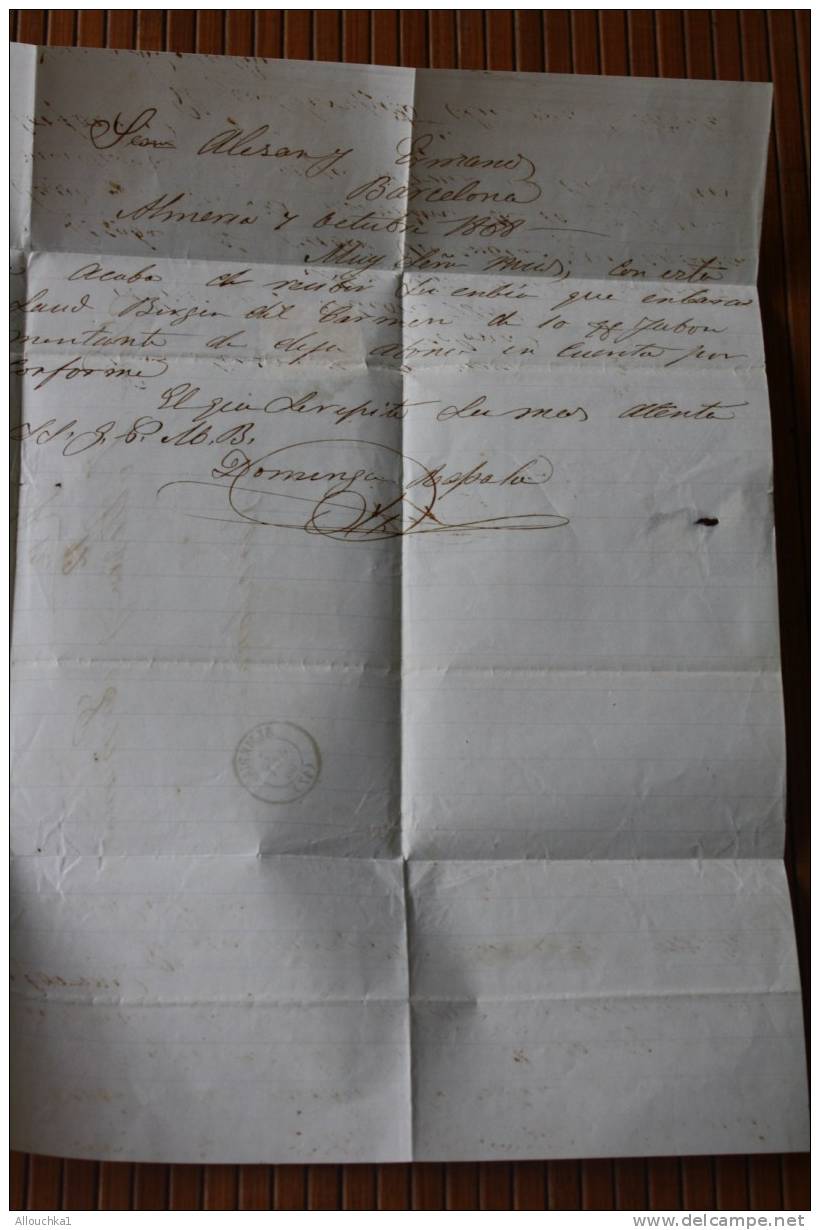 Señr Alesan y Ermano
Barcelona
Almeria 7 Octubre 1868
Muy Señr mios, con esta
acabo de recibir Su enbio que enbarco
Laud Birgen del Carmen de 10 Jabon
montante de deja abonar en Cuenta por
Conforme
El que Se repite Su mas atento
S.S. J. E. M. B.
Domingo
Allouchka1
www.delcampe.net